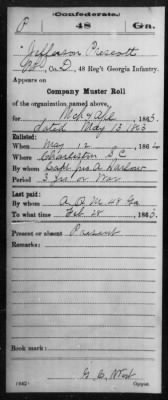 Confederate.
P 48 Ga.
Jefferson Prescott
Co. D, 48 Reg't Georgia Infantry.
Appears on
Company Muster Roll
of the organization named above,
for Mch & Apl, 1863.
dated May 13 1863
Enlisted:
When May 12, 1862
Where Charleston S C
By whom Capt Jno A Harlow
Period 3 yrs or War
Last paid:
By whom A. Q. M. 48 Ga
To what time Feb 28, 1863.
Present or absent Present
Remarks:
Book mark:
(642) G. C. West
Copyist.